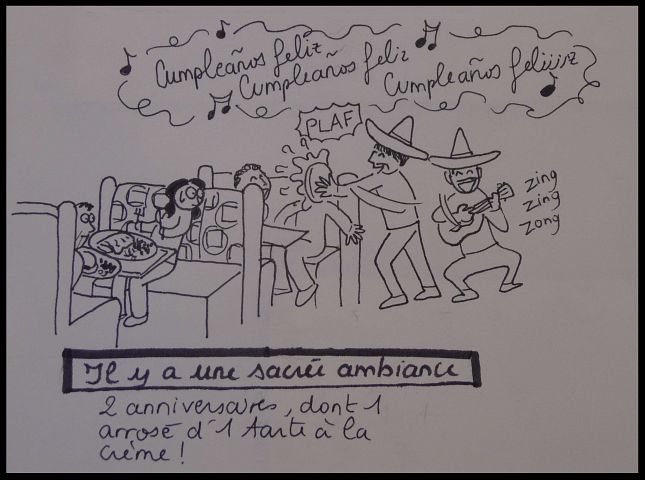 Cumpleaños feliz
Cumpleaños feliz
Cumpleaños feliiiiz
PLAF
Zing
Zing
Zong
Il y a une sacrée ambiance
2 anniversaires, dont 1
arrosé d'1 tarte à la
crème !